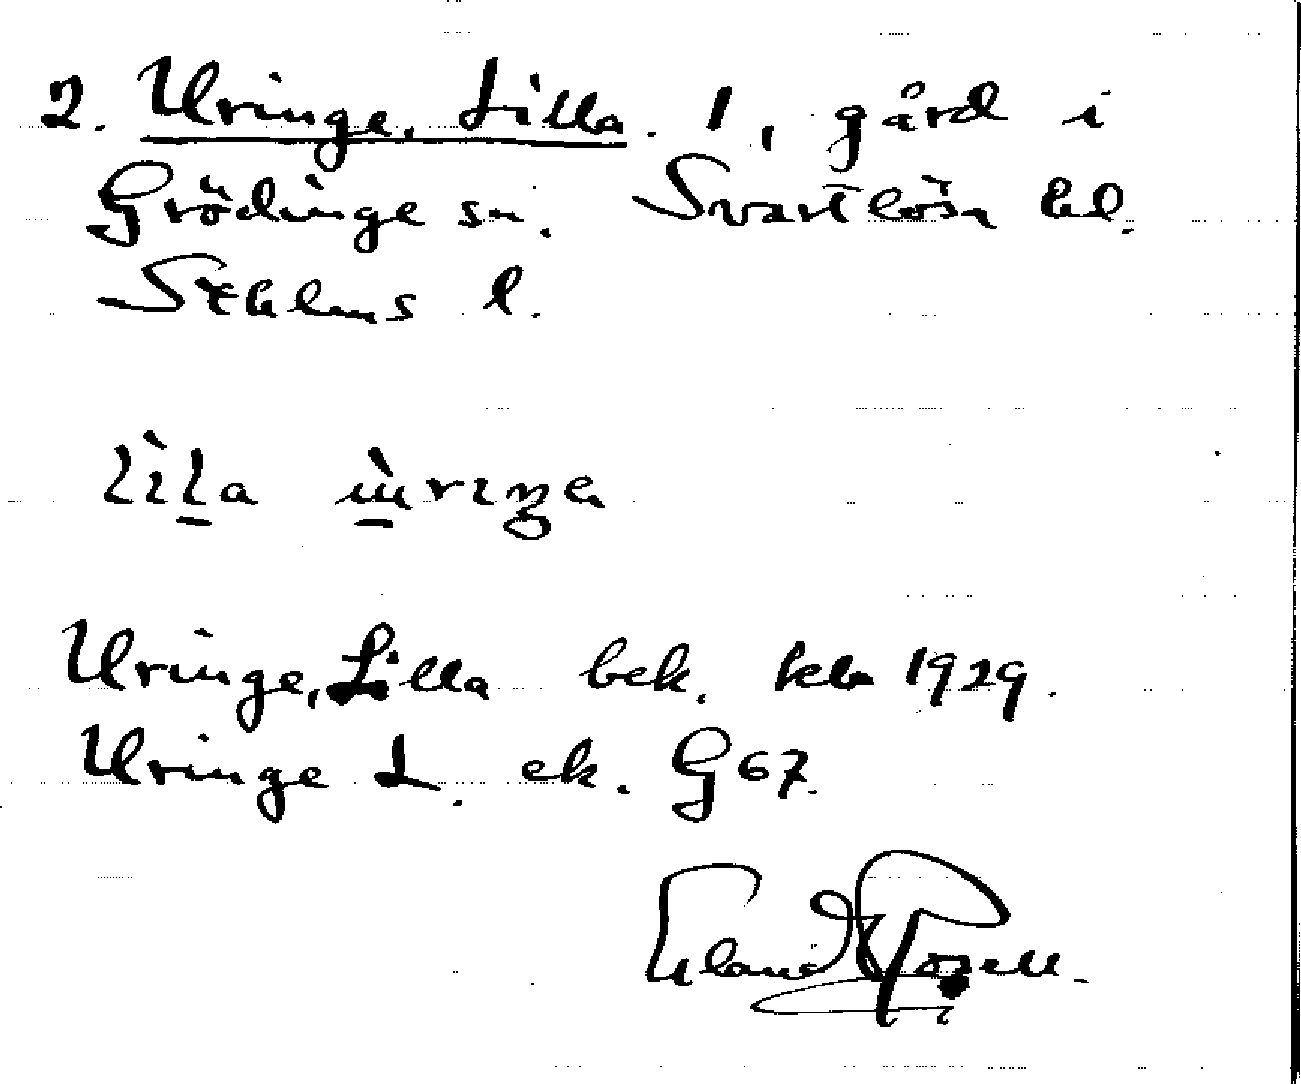 2. Uringe, Lilla. 1, gård i
Grödinge sn. Svartlösa hd.
Sthlms l.
lìla ùriŋe
Uringe, Lilla bek. kbr 1929.
Uringe L. ek. G 67.
Erland Rosell.